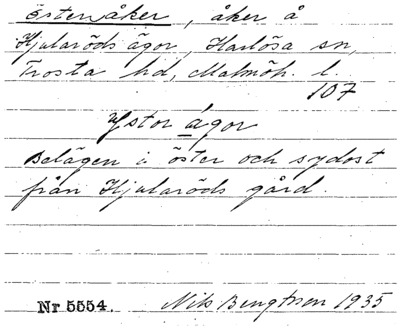 östenåker, åker å
Hjularöds ägor, Harlösa sn,
Frosta hd, Malmöh. l.
107
ystor ágor
Belägen i öster och sydost
från Hjularöds gård.
Nr 5554. Nils Bengtsson 1935